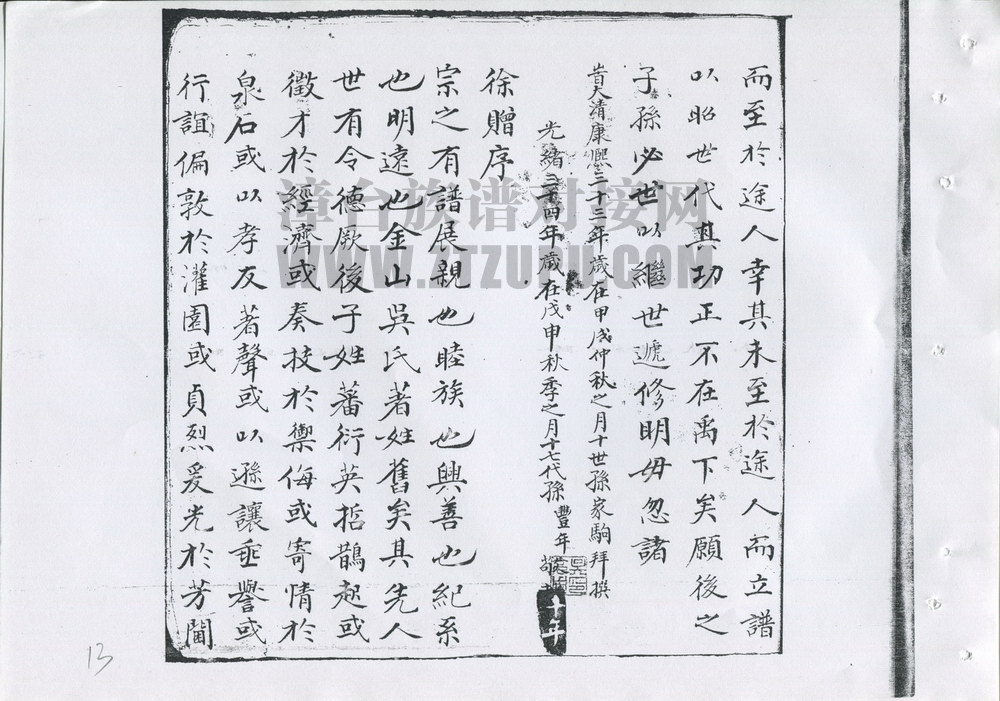 而至於途人幸其未至於途人而立譜
以昭世代其功正不在禹下矣願後之
子孫必世以繼世遞修明毋忽諸
大清康熙三十三年歲在甲戌仲秋之月十世孫家駒拜撰
光緒三十四年歲在戊申秋季之月十七代孫豐年敬
徐贈序
宗之有譜展親也睦族也興善也紀系
也明遠也金山吳氏著姓舊矣其先人
世有令德厥後子姓蕃衍英哲鵲起或
徵才於經濟或奏技於禦侮或寄情於
泉石或以孝友著聲或以遜讓垂譽或
行誼偏敦於灌園或貞烈爰光於芳閫
漳台族谱对接网
WWW.ZTZUPU.COM
13